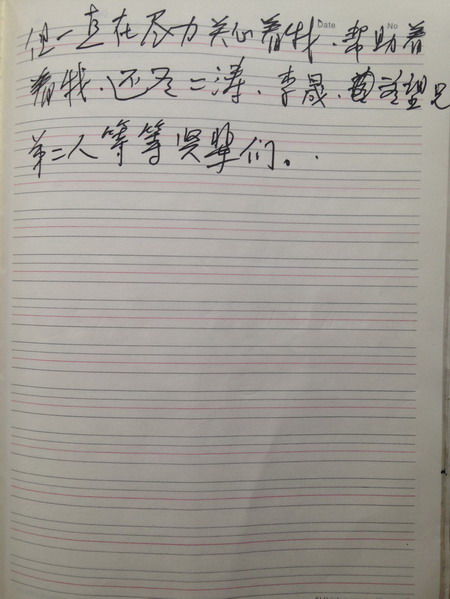 Date No
但一直在尽力关心着我、帮助着
着我、还有二涛、李晟、曹望兄
弟二人等等贤辈们。